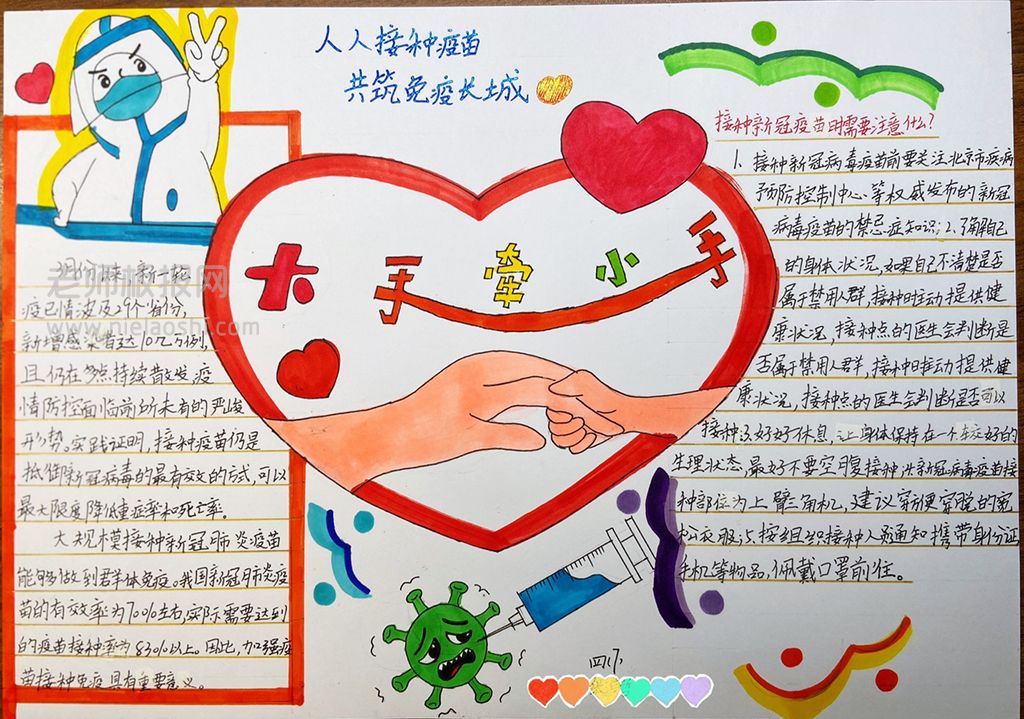 人人接种疫苗
共筑免疫长城
大手牵小手
老师板报网
www.nielaoshi.com
疫已情波及29个省份,
新增感染者达
且仍在多点持续散发,疫
情防控面临前所未有的严峻
形势。实践证明,接种疫苗仍是
抵御新冠病毒的最有效的方式,可以
最大限度降低重症率和死亡率。
大规模接种新冠肺炎疫苗
能够做到群体免疫。我国新冠肺炎疫
苗的有效率为70%左右,实际需要达到
的疫苗接种率为83%以上。因此,加强疫
苗接种免疫具有重要意义。
接种新冠疫苗时需要注意什么?
1、接种新冠病毒疫苗前要关注北京市疾病
预防控制中心等权威发布的新冠
病毒疫苗的禁忌症知识;2、了解自己
的身体状况,如果自己不清楚是否
属于禁用人群,接种时主动提供健
康状况,接种点的医生会判断是
否属于禁用人群,接种时主动提供健
康状况,接种点的医生会判断是否可以
接种;3、好好休息,让身体保持在一个较好的
生理状态,最好不要空腹接种;4、新冠病毒疫苗接
种部位为上臂三角肌,建议穿便穿脱的宽
松衣服;5、按组织接种人员通知携带身份证,
手机等物品,佩戴口罩前往。